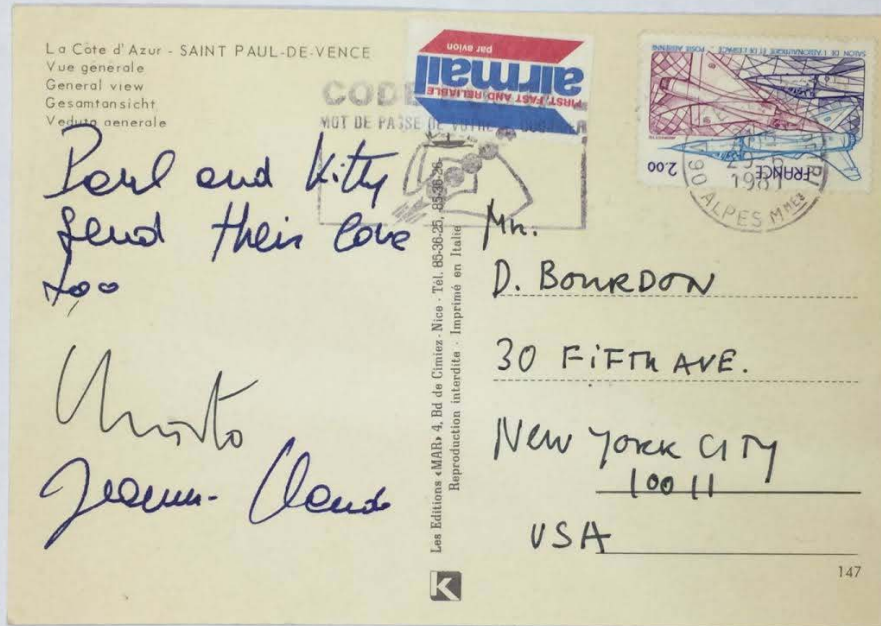 La Côte d'Azur - SAINT PAUL-DE-VENCE
Vue générale
General view
Gesamtansicht
Veduta generale
par avion
airmail
FIRST, FAST AND RELIABLE
CODE
MOT DE PASSE DE VOTRE
SALON DE L'AÉRONAUTIQUE ET DE L'ESPACE POSTE AÉRIENNE
2.00 FRANCE
06
1981
ALPES MMES
Paul and Kitty
send their love
too
Christo
Jeanne-Claude
Les Editions «MAR» 4, Bd de Cimiez - Nice - Tél. 85-36-25, 85-36-26
Reproduction interdite - Imprimé en Italie
Mr.
D. BOURDON
30 FiFTH AVE.
NEW YORK CITY
10011
USA
K
147